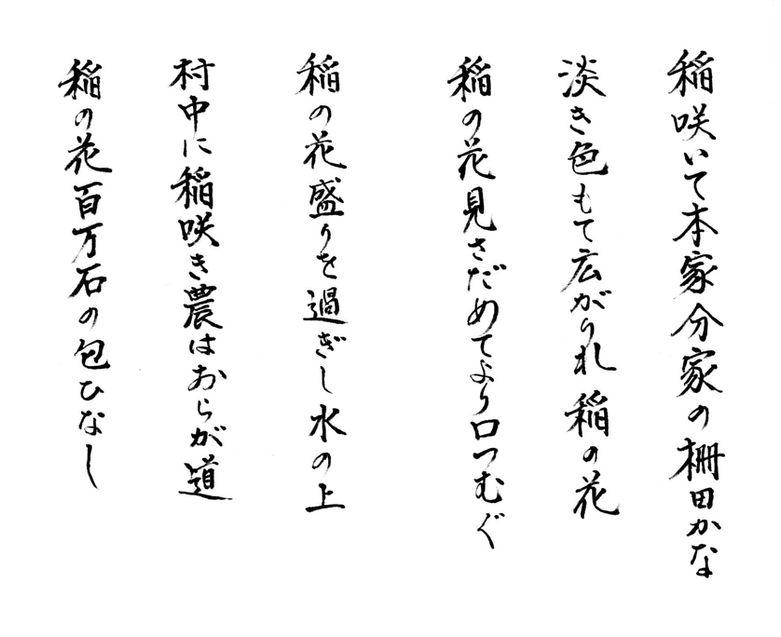 稲咲いて本家分家の棚田かな
淡き色もて広がりれ稲の花
稲の花見さだめてより口つむぐ
稲の花盛りを過ぎし水の上
村中に稲咲き農はおらが道
稲の花百万石の匂ひなし